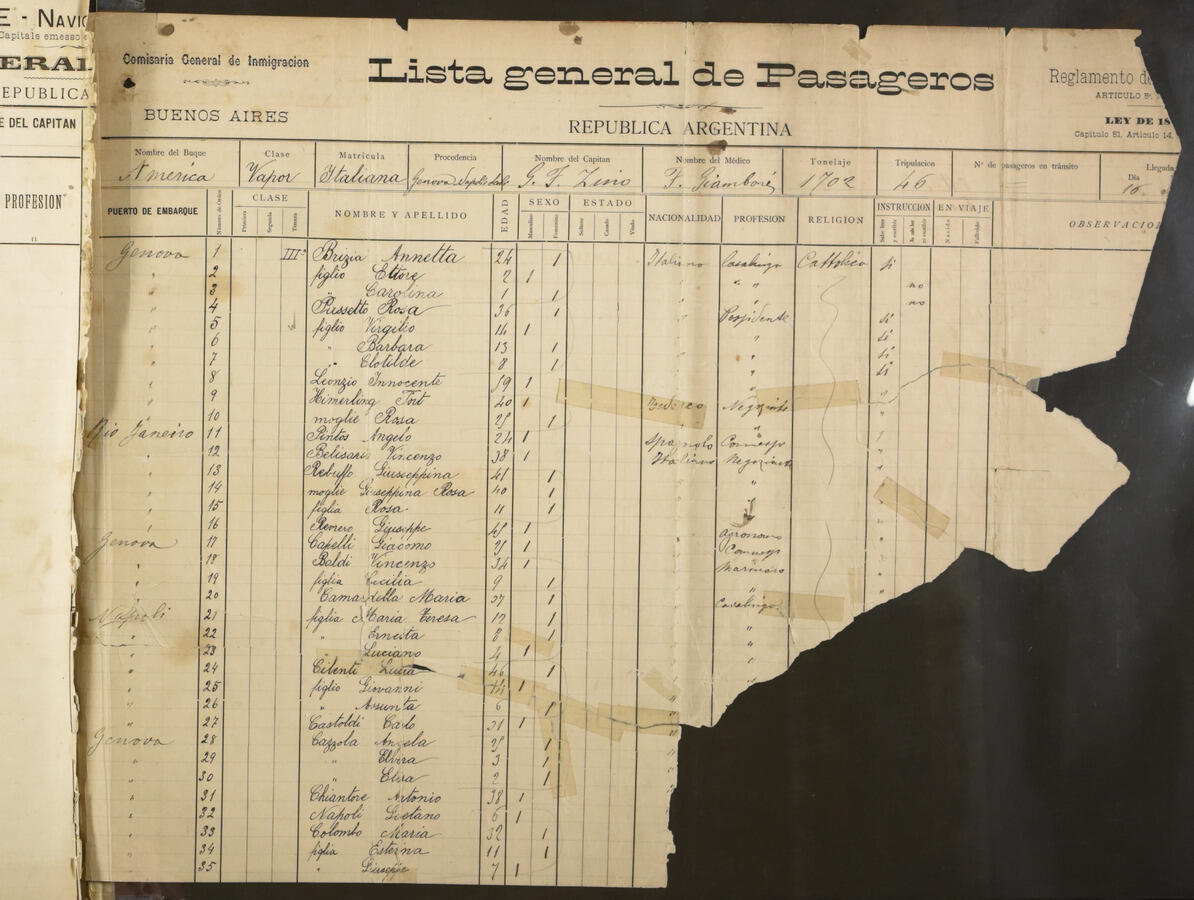 E - NAVIC
Capitale emesso e
ERAL
EPUBLICA
E DEL CAPITAN
PROFESION
Comisaria General de Inmigracion
BUENOS AIRES
Lista general de Pasageros
REPUBLICA ARGENTINA
Reglamento de
ARTICULO 8º
LEY DE 18
Capitulo 81, Articulo 14.
Nombre del Buque Clase Matricula Procedencia Nombre del Capitan Nombre del Médico Tonelaje Tripulacion Nº de pasageros en tránsito Llegada
America Vapor Italiana Genova Napoli G. F. Zino F. Giamboré 1702 46 Dia 16
PUERTO DE EMBARQUE Número de Orden CLASE Primera Segunda Tercera NOMBRE Y APELLIDO EDAD SEXO Masculino Femenino ESTADO Soltero Casado Viudo NACIONALIDAD PROFESION RELIGION INSTRUCCION EN VIAJE Nacido Fallecido OBSERVACIO
Genova 1 III Brizia Annetta 24 1 Italiano Casalinga Cattolica si
" 2 figlio Ettore 2 1 " " "
" 3 " Carolina 1 1 " " no
" 4 Piessetto Rosa 36 1 " Possidente no
" 5 figlio Virgilio 14 1 " si
" 6 " Barbara 13 1 " " si
" 7 " Clotilde 8 1 " " si
" 8 Lionzio Innocente 59 1 " " si
" 9 Himerling Tort 40 1 Tedesco Negoziante "
" 10 moglie Rosa 25 1 " "
Rio Janeiro 11 Pintos Angelo 24 1 Spagnolo "
" 12 Belisari Vincenzo 38 1 Italiano Negoziante "
" 13 Rebuffo Giuseppina 41 1 " "
" 14 moglie Giuseppina Rosa 40 1 "
" 15 figlia Rosa 11 1 "
" 16 Giuseppe 45 1 "
Genova 17 Capelli Giacomo 25 1 "
" 18 Baldi Vincenzo 34 1 " Marinaro "
" 19 figlia Cecilia 9 1 " "
" 20 Camardella Maria 37 1 " Casalinga
Napoli 21 figlia Maria Teresa 12 1 " "
" 22 " Ernesta 8 1 " "
" 23 " Luciano 4 1 " "
" 24 Cilenti Luisa 46 1 "
" 25 figlio Giovanni 14 1 "
" 26 " Assunta 6 1 "
" 27 Castoldi Carlo 31 1 "
Genova 28 Cazzola Angela 25 1
" 29 " Elvira 3 1 "
" 30 " Elisa 2 1 "
" 31 Chiantore Antonio 38 1 "
" 32 Napoli Gaetano 6 1 "
" 33 Colombo Maria 32 1
" 34 figlia Esterina 11 1
" 35 " Giuseppe 7 1